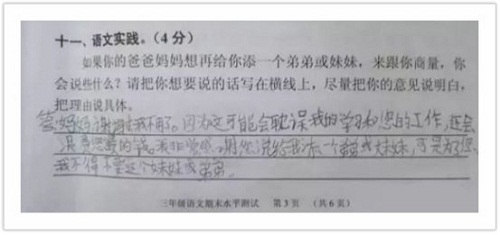 十一、语文实践。（4分）
如果你的爸爸妈妈想再给你添一个弟弟或妹妹，来跟你商量，你
会说些什么？请把你想要说的话写在横线上，尽量把你的意见说明白，
把理由说具体。
答妈妈谢谢我不用了。因为这可能会耽误我的学习和您的工作，还会
浪费您要的钱。我非常感谢您说给我添一个弟弟或妹妹，可是为了您
我不得不要这个妹妹或弟弟。
三年级语文期末水平测试 第3页 （共6页）